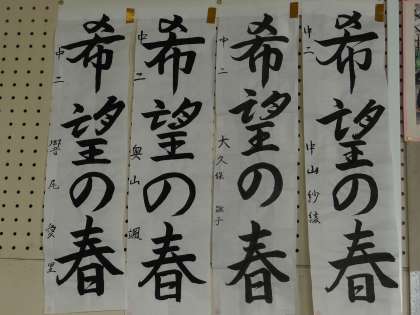 希望の春
中二 中山紗綾
希望の春
中二 大久保 諏子
希望の春
中二 奥山 颯
希望の春
中二 尾 愛里